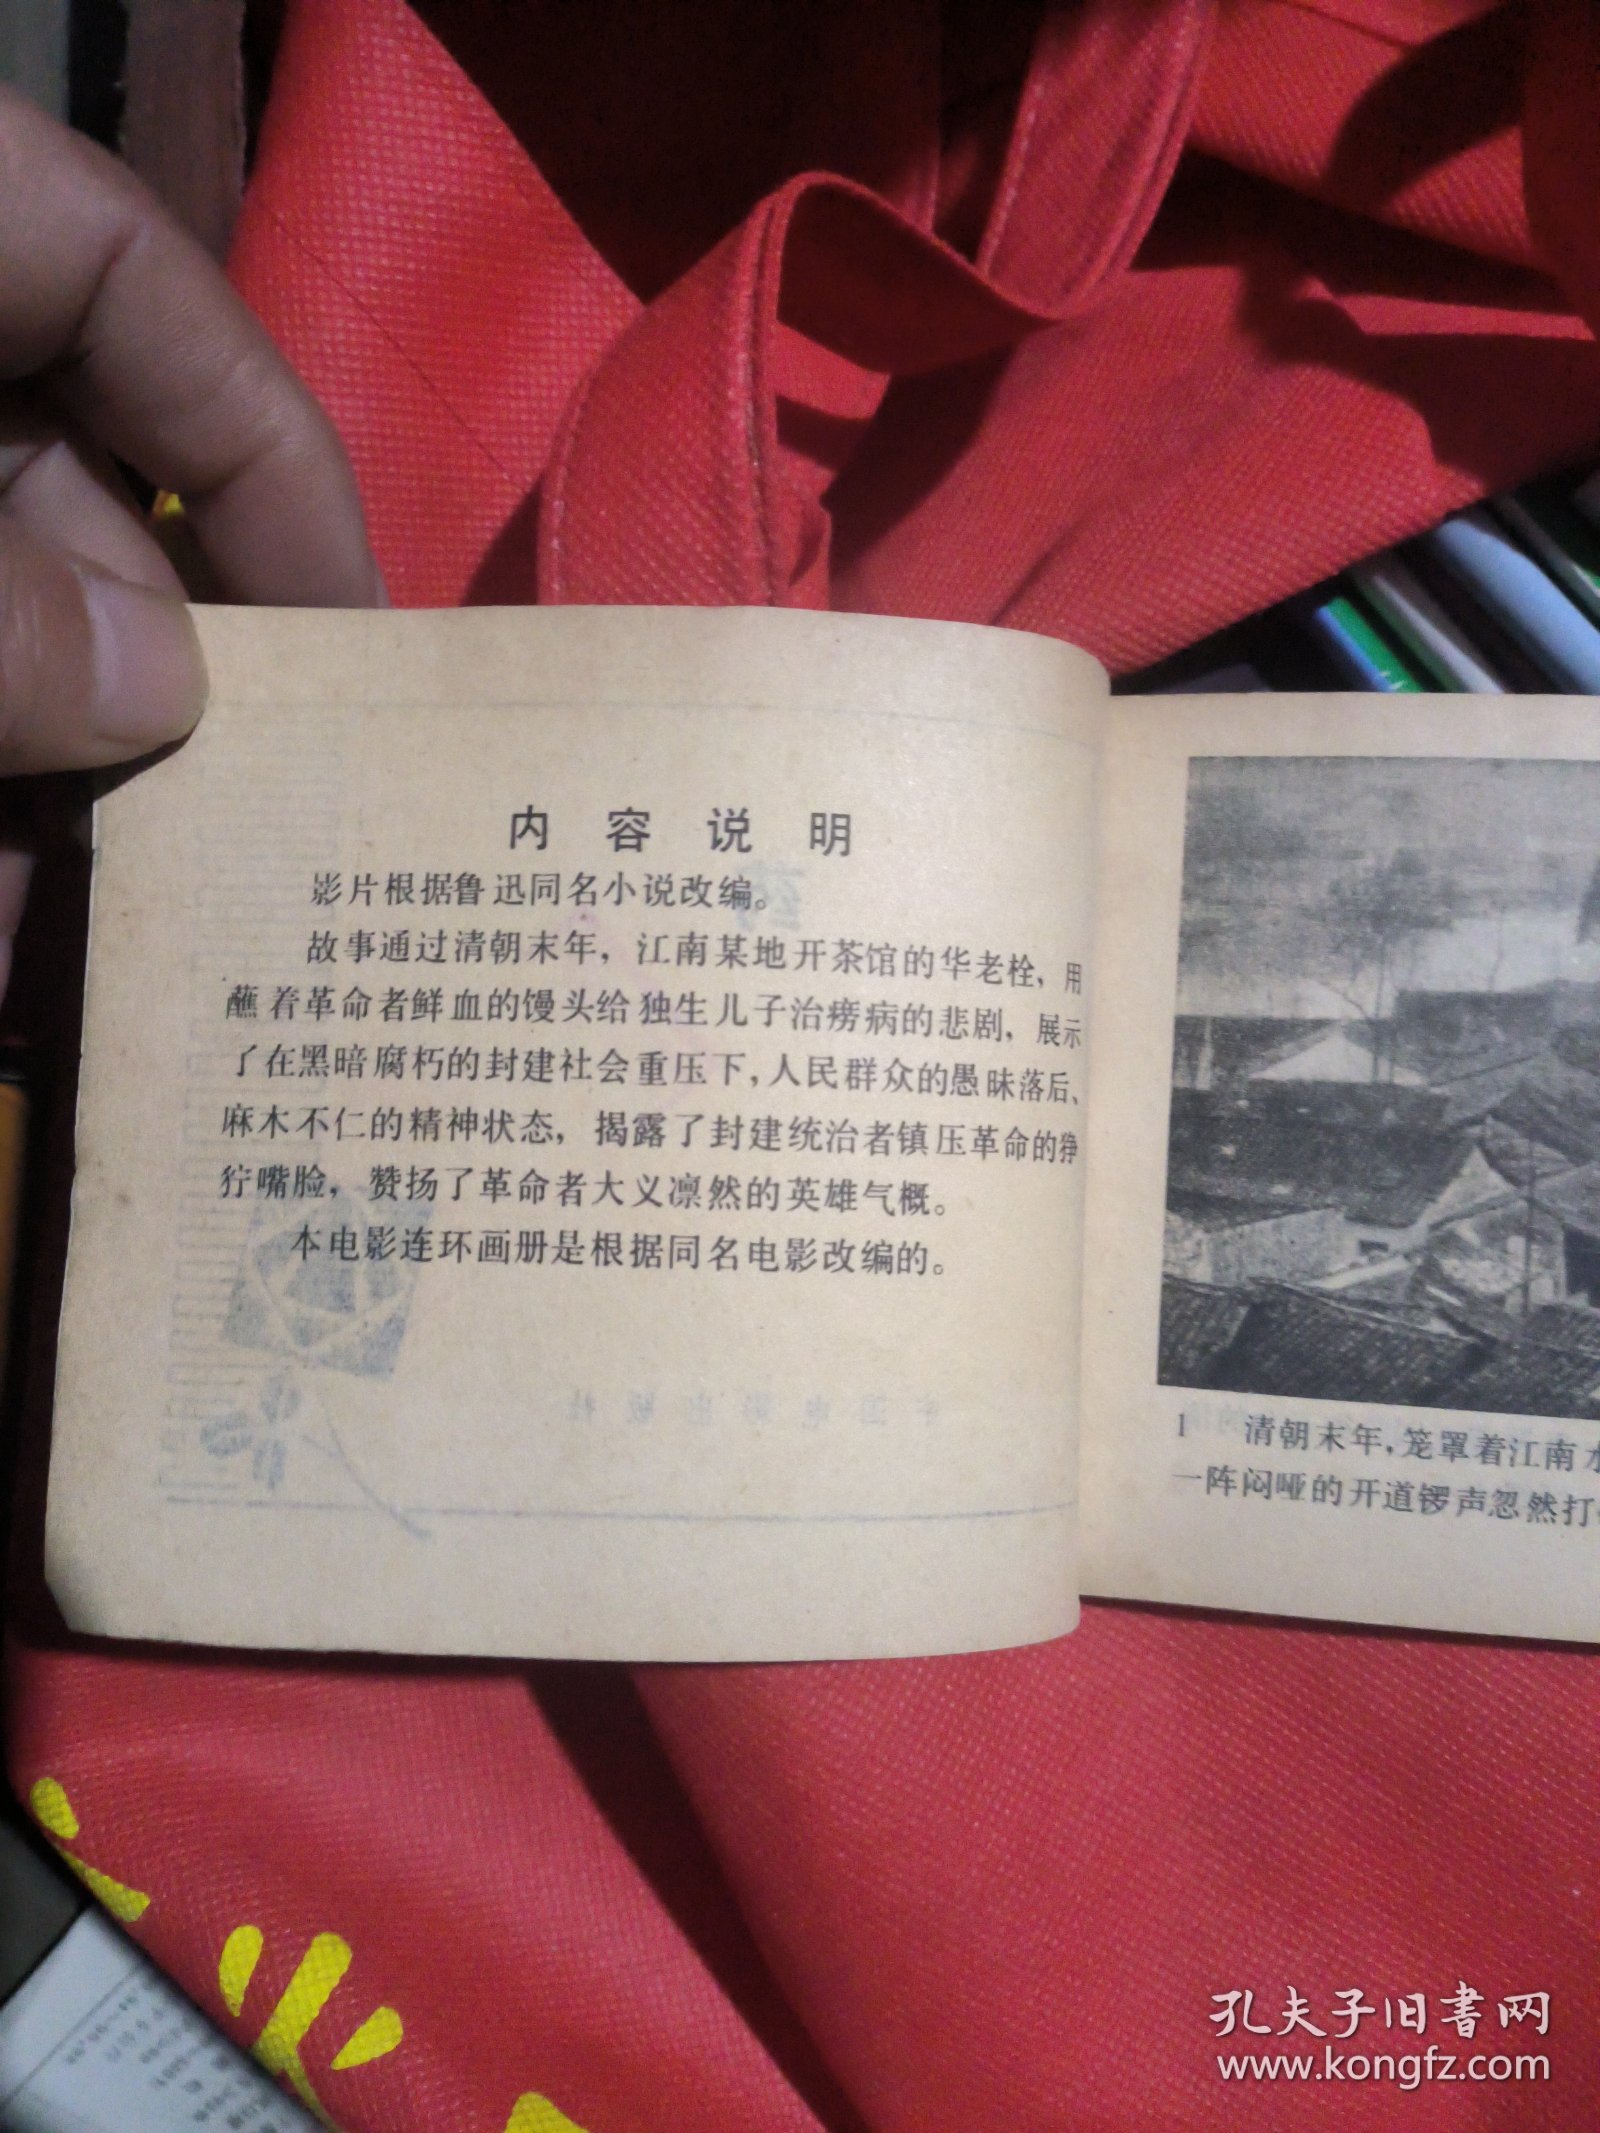 内容说明
影片根据鲁迅同名小说改编。
故事通过清朝末年，江南某地开茶馆的华老栓，用
蘸着革命者鲜血的馒头给独生儿子治痨病的悲剧，展示
了在黑暗腐朽的封建社会重压下，人民群众的愚昧落后、
麻木不仁的精神状态，揭露了封建统治者镇压革命的狰
狞嘴脸，赞扬了革命者大义凛然的英雄气概。
本电影连环画册是根据同名电影改编的。
1 清朝末年，笼罩着江南水
一阵闷哑的开道锣声忽然打
孔夫子旧书网
www.kongfz.com